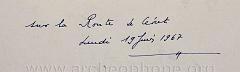 sur la Route de Céret
Lundi 19 Juin 1967
www.archeophone.org